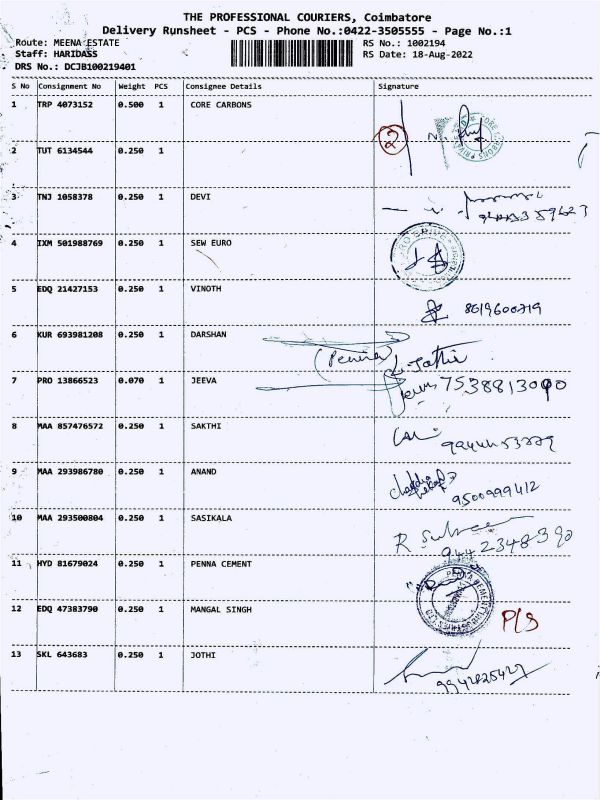 THE PROFESSIONAL COURIERS, Coimbatore
Delivery Runsheet - PCS - Phone No.:0422-3505555 - Page No.:1
Route: MEENA ESTATE RS No.: 1002194
Staff: HARIDASS RS Date: 18-Aug-2022
DRS No.: DCJB100219401
S No Consignment No Weight PCS Consignee Details Signature
1 TRP 4073152 0.500 1 CORE CARBONS
2
2 TUT 6134544 0.250 1
3 TNJ 1058378 0.250 1 DEVI
4 IXM 501988769 0.250 1 SEW EURO
5 EDQ 21427153 0.250 1 VINOTH
8619600719
6 KUR 693981208 0.250 1 DARSHAN
7 PRO 13866523 0.070 1 JEEVA
7538813090
8 MAA 857476572 0.250 1 SAKTHI
9 MAA 293986780 0.250 1 ANAND
9500999412
10 MAA 293500804 0.250 1 SASIKALA
11 HYD 81679024 0.250 1 PENNA CEMENT
12 EDQ 47383790 0.250 1 MANGAL SINGH
P/S
13 SKL 643683 0.250 1 JOTHI